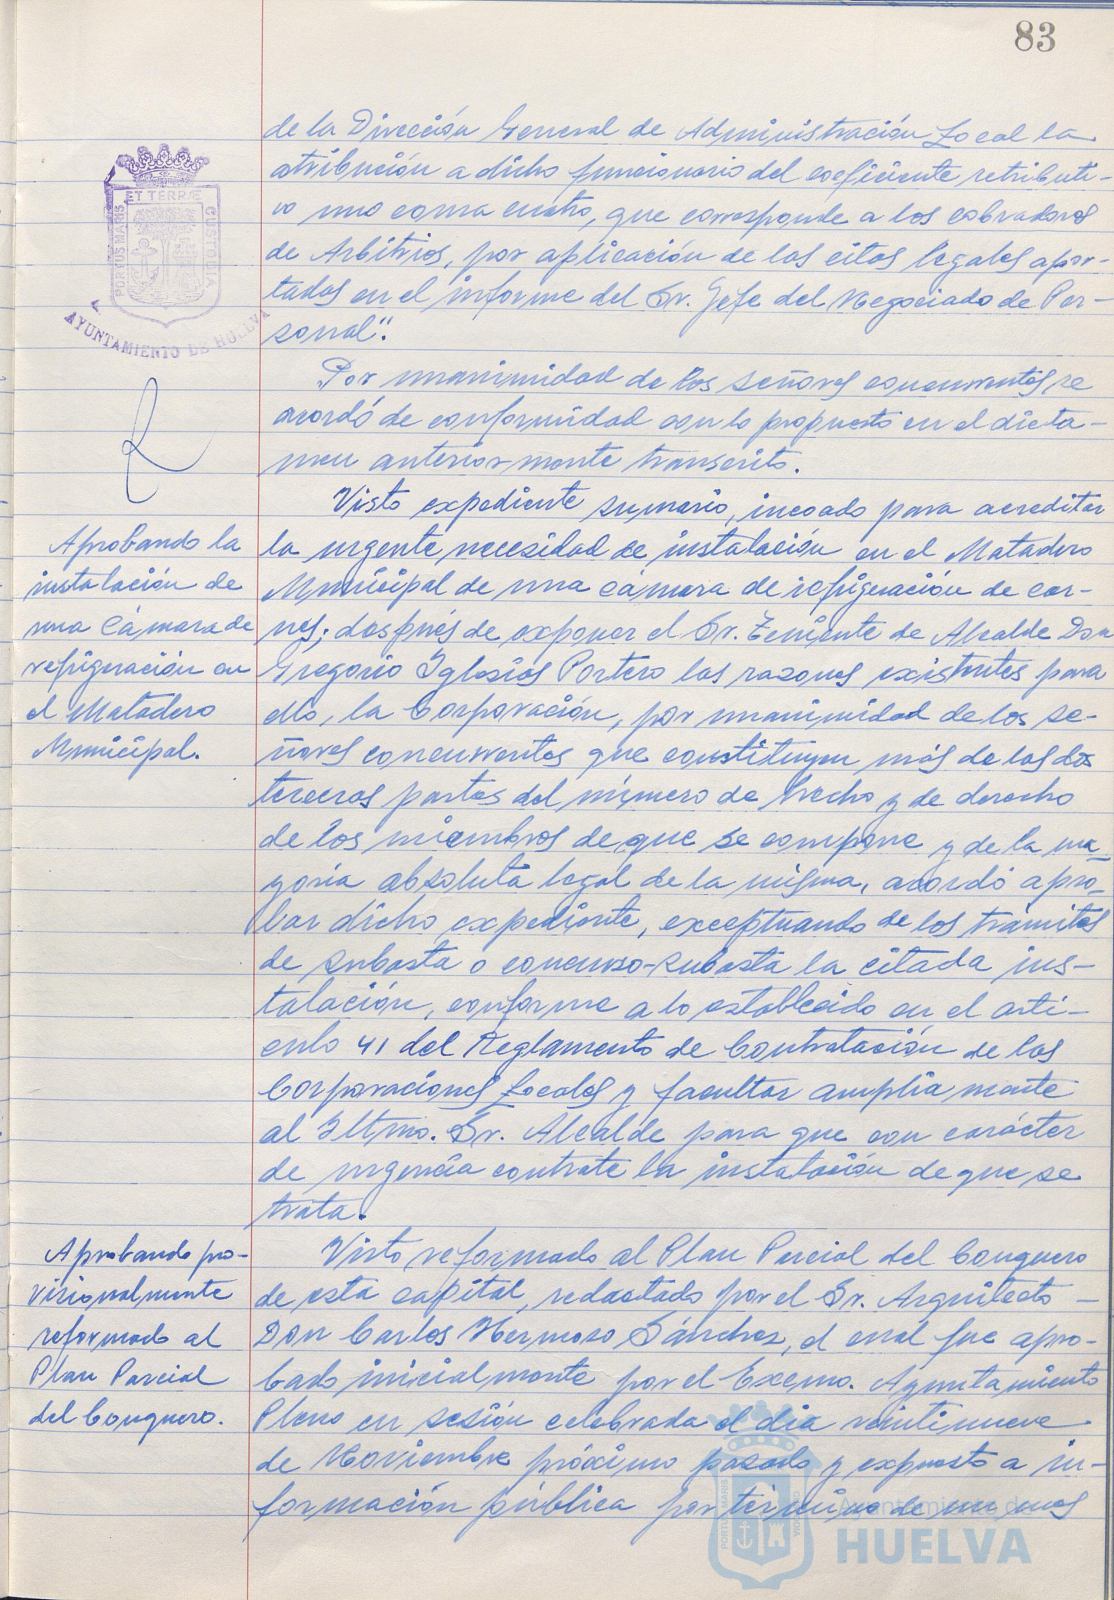 83
de la Dirección General de Administración Local la
atribución a dicho funcionario del coeficiente retributi-
vo uno coma cuatro, que corresponde a los cobradores
de Arbitrios, por aplicación de las citas legales apor-
tadas en el informe del Sr. Jefe del Negociado de Per-
sonal".
Por unanimidad de los señores concurrentes, se
acordó de conformidad con lo propuesto en el dicta-
men anteriormente transcrito.
Visto expediente sumario, incoado para acreditar
la urgente necesidad de instalación en el Matadero
Municipal de una cámara de refrigeración de car-
nes; después de exponer el Sr. Teniente de Alcalde Don
Gregorio Iglesias Portero las razones existentes para
ello, la Corporación, por unanimidad de los se-
ñores concurrentes que constituyen más de las dos
terceras partes del número de hecho y de derecho
de los miembros de que se compone y de la ma-
yoría absoluta legal de la misma, acordó apro-
bar dicho expediente, exceptuando de los trámites
de subasta o concurso-subasta la citada ins-
talación, conforme a lo establecido en el artí-
culo 41 del Reglamento de Contratación de las
Corporaciones Locales y facultar ampliamente
al Iltmo. Sr. Alcalde para que con carácter
de urgencia contrate la instalación de que se
trata.
Visto reformado al Plan Parcial del Conquero
de esta capital, redactado por el Sr. Arquitecto
Don Carlos Hermoso Sánchez, el cual fue apro-
bado inicialmente por el Excmo. Ayuntamiento
Pleno en sesión celebrada el día veintinueve
de Noviembre próximo pasado y expuesto a in-
formación pública por término de un mes
ET TERRÆ
PORTUS MARIS
CUSTODIA
AYUNTAMIENTO DE HUELVA
Aprobando la
instalación de
una Cámara de
refrigeración en
el Matadero
Municipal.
Aprobando pro-
visionalmente
reformado al
Plan Parcial
del Conquero.
PORTUS MARIS
CUSTODIA
Ayuntamiento de
HUELVA